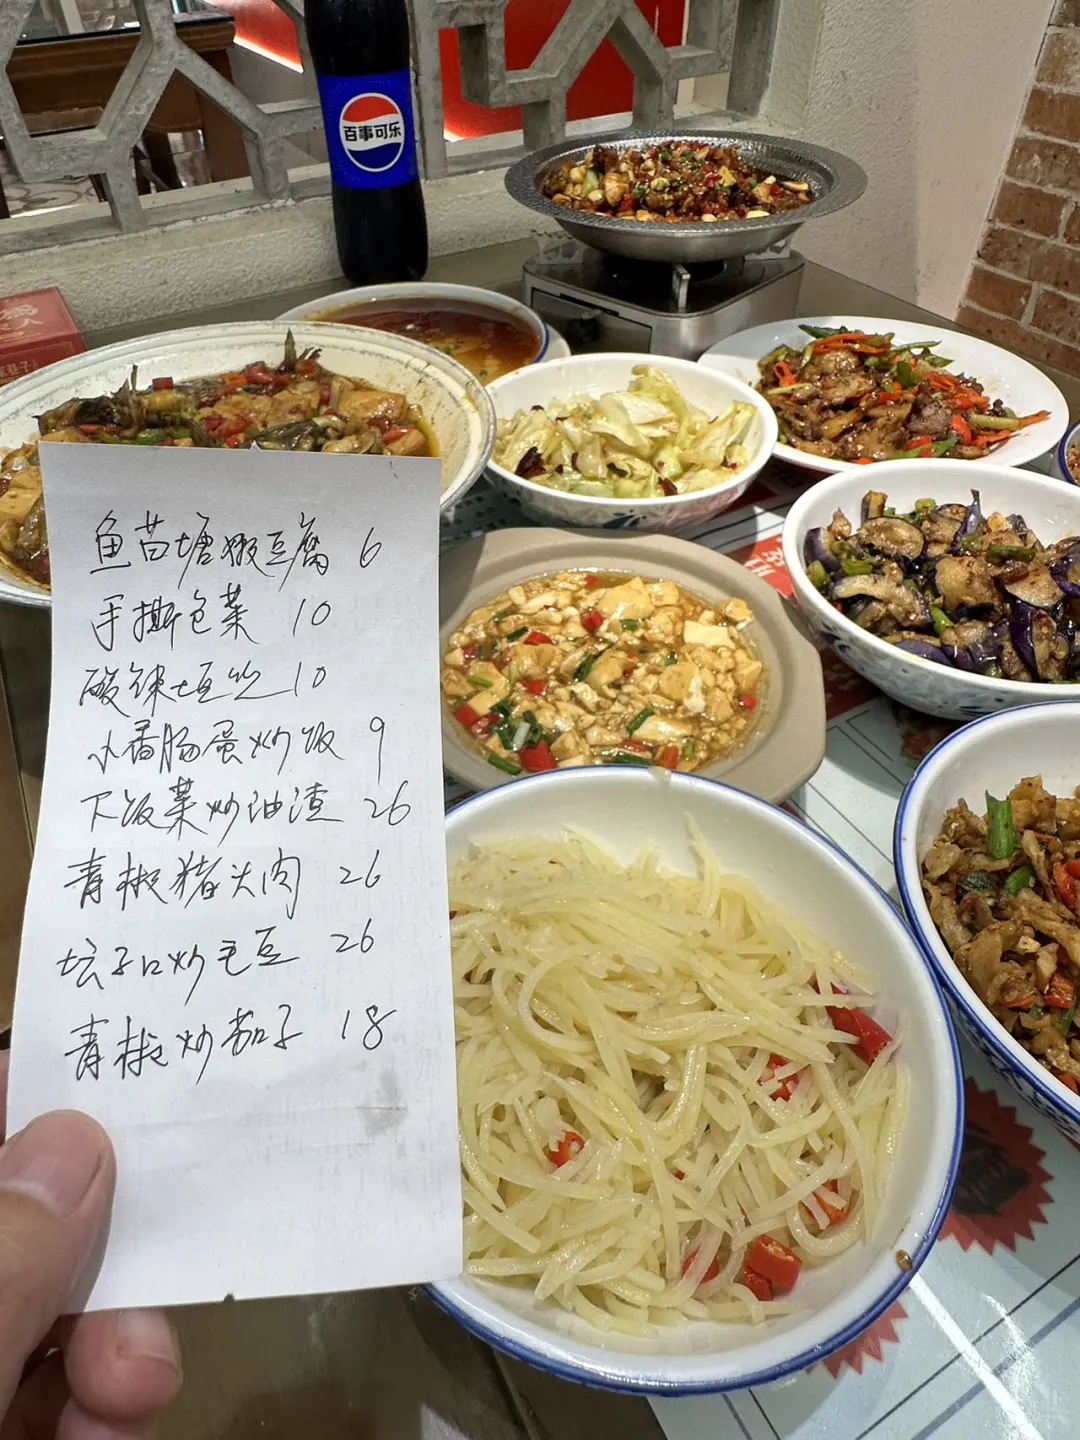 百事可乐
鱼苗塘煨豆腐 6
手撕包菜 10
酸辣土豆丝 10
小香肠蛋炒饭 9
下饭菜炒油渣 26
青椒猪头肉 26
坛子口炒毛豆 26
青椒炒茄子 18